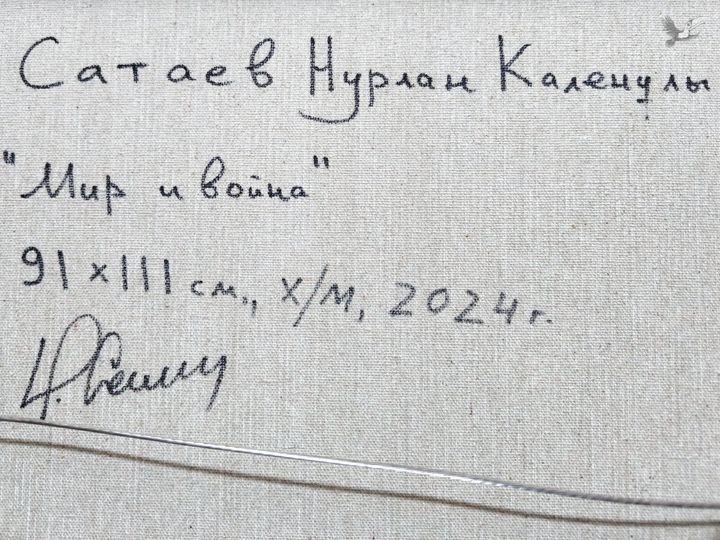 Сатаев Нурлан Каленулы
"Мир и война"
91 х 111 см., х/м, 2024 г.